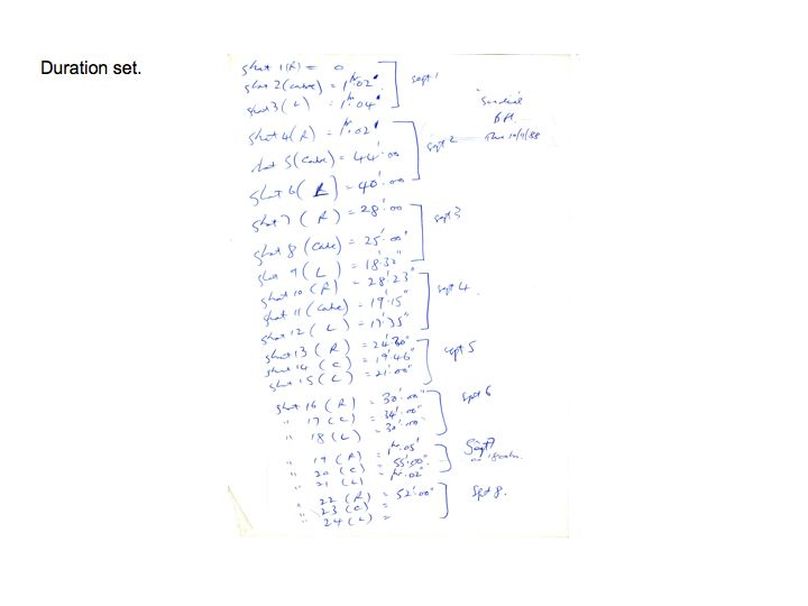 Duration set.
Shot 1 (R) = 0
Shot 2 (Cake) = 1hr.02'
Shot 3 ( L ) = 1hr.04'
Sept 1
Shot 4 (R) = 1hr.02'
Shot 5 (Cake) = 44'.00
Shot 6 ( L ) = 40'.00
Sept 2
Shot 7 ( R ) = 28'.00
Shot 8 (Cake) = 25'.00"
Shot 9 ( L ) = 18'.32"
Sept 3
Shot 10 (R) = 28'23"
Shot 11 (Cake) = 19'.15"
Shot 12 ( L ) = 17'.35"
Sept 4
Shot 13 ( R ) =
Shot 14 ( C ) = 19'.46"
Shot 15 ( L ) = 21'.00"
Sept 5
Shot 16 ( R ) = 30'.00"
" 17 ( C ) = 34'.00"
" 18 ( L ) = 30'.00
Sept 6
" 19 ( R ) = 1hr.05'
" 20 ( C ) = 55'.00"
" 21 ( L ) = 1hr.02'
Sept 7
" 22 ( R ) = 52'.00"
" 23 ( C ) =
" 24 ( L ) =
Sept 8.